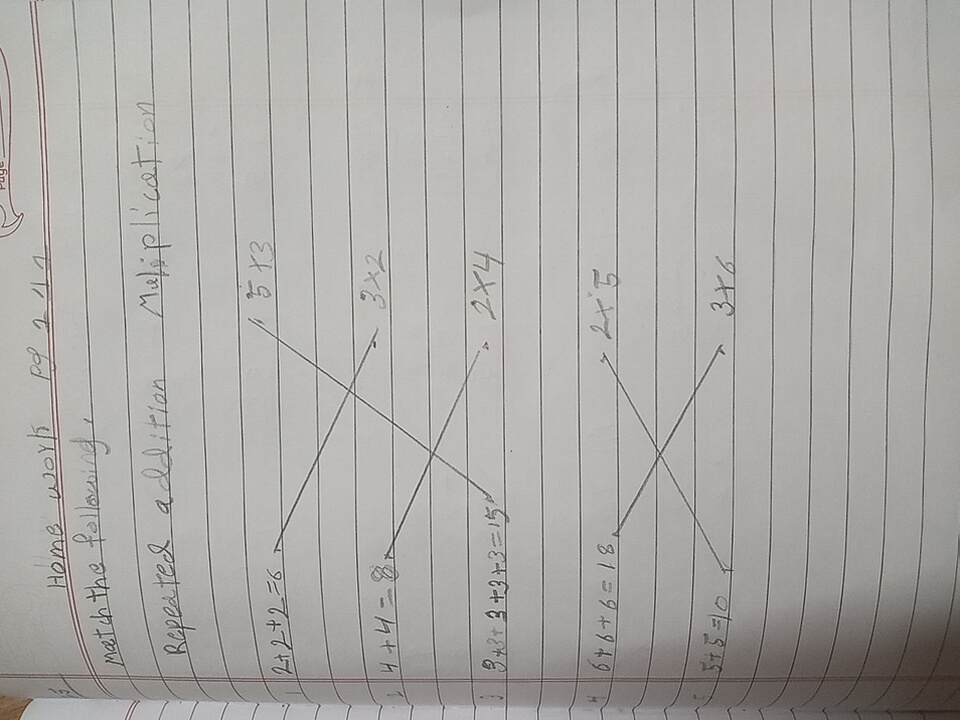 Page
Home work pg 211
Match the following.
Repeated addition Multiplication
1 2+2+2=6 5×3
2 4+4=8 3×2
3 3+3+3+3+3=15 2×4
4 6+6+6=18 2×5
5 5+5=10 3×6